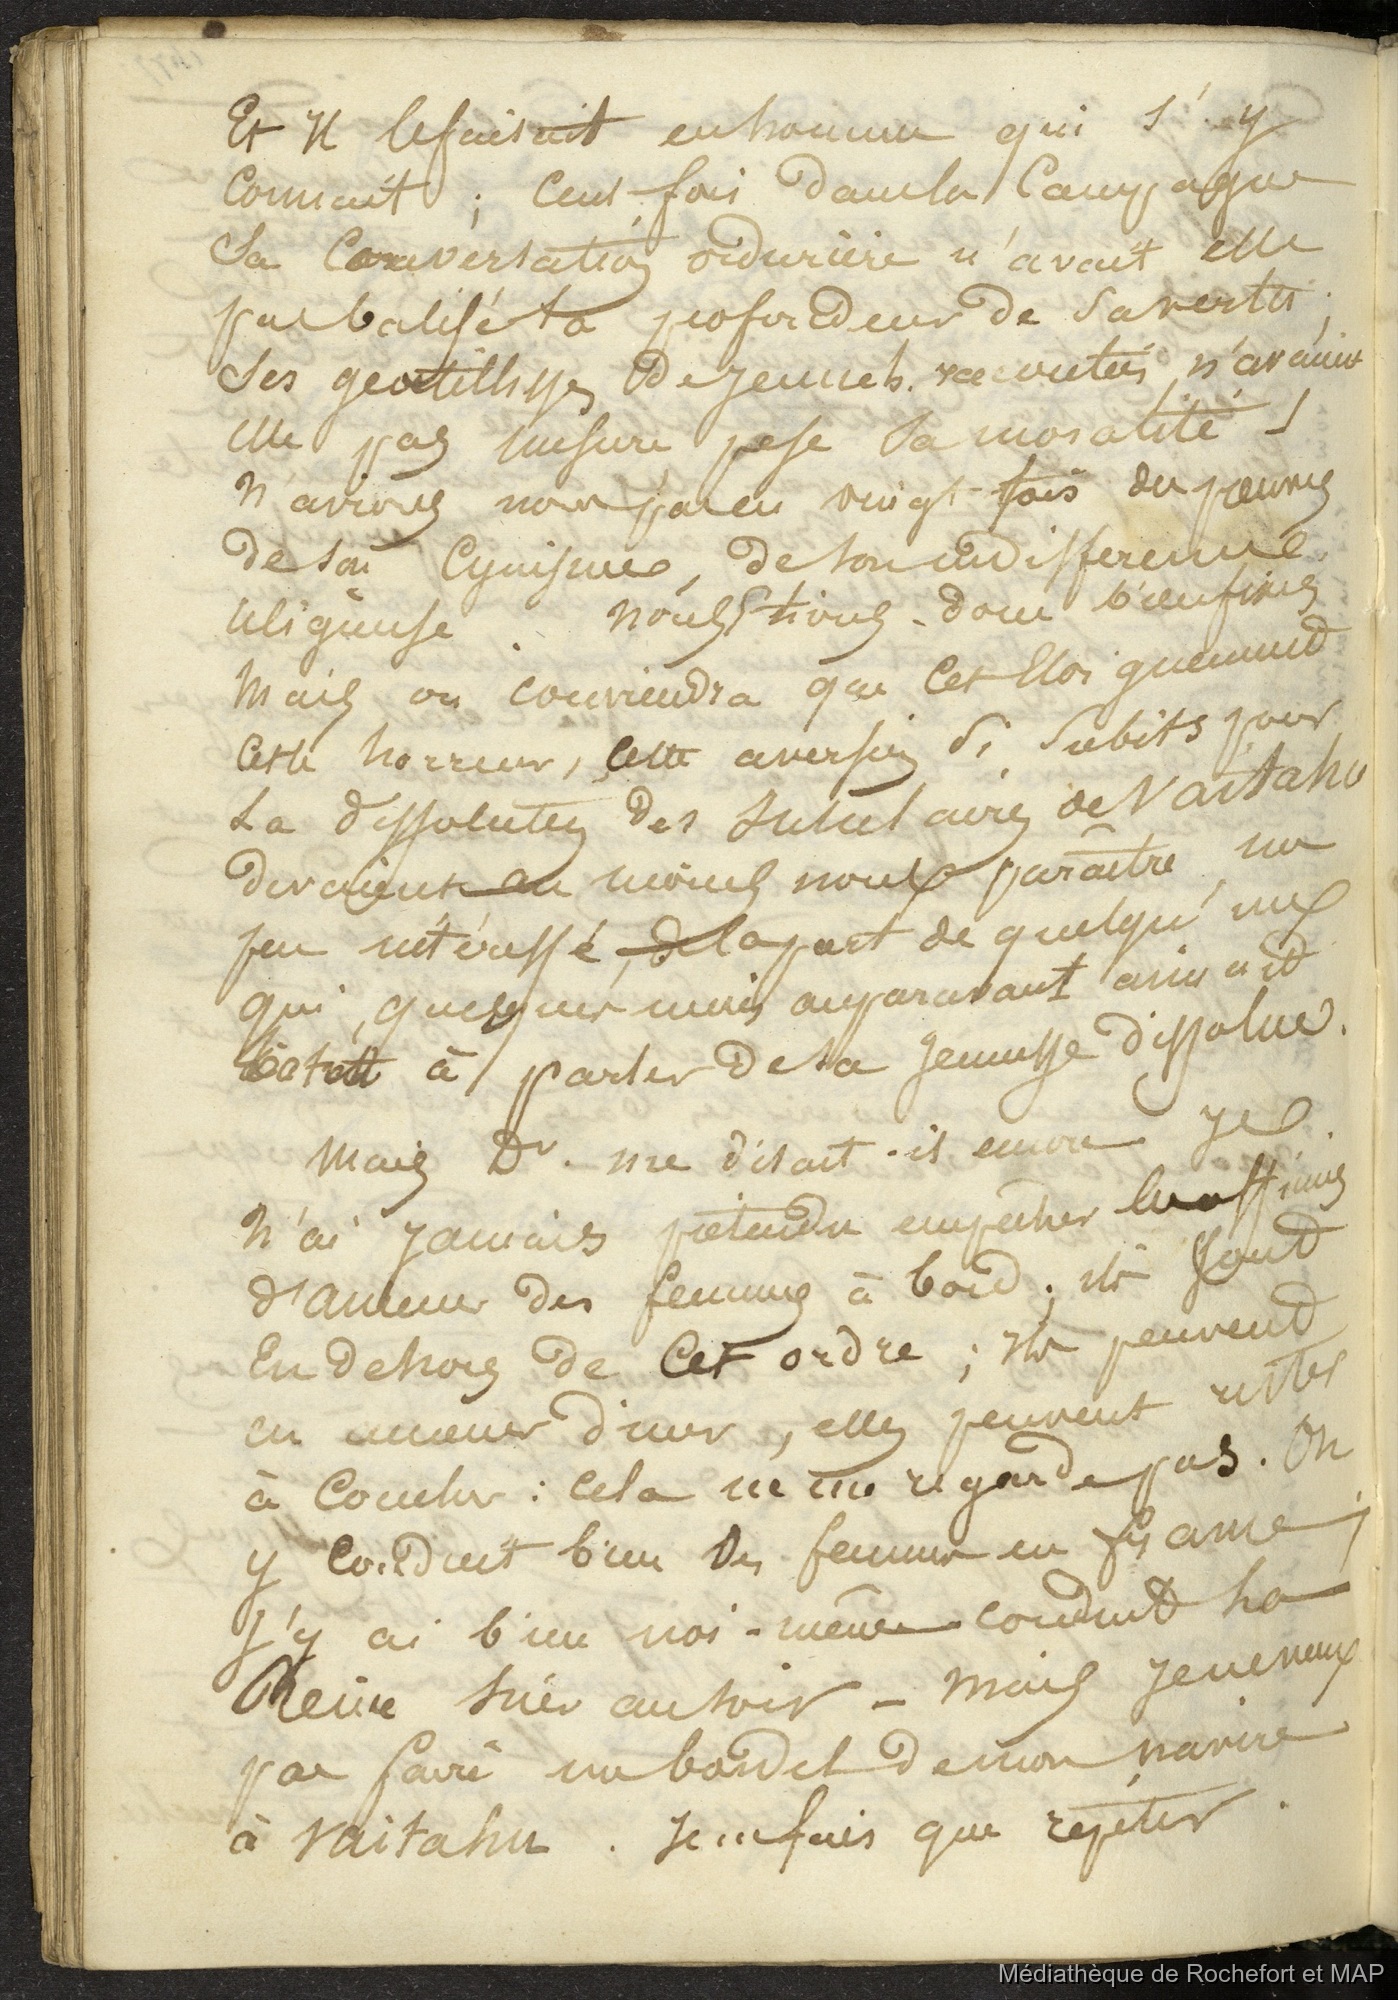 Et Il le faisait en homme qui s'y
connait ; Cent fois dans la Campagne
Sa Conversation ordurière n'avait elle
pas balisé la profondeur de Sa vertu ;
Ses gentillesses de jeunesse racontées n'avaient
elle pas mesuré pesé Sa moralité !
N'avions nous pas eu vingt fois des preuves
de son Cynisme, de son indifference
religieuse . Nous étions donc bien fixés
Mais on conviendra que Cet Eloignement
Cette horreur, Cette aversion Si Subits pour
La dissolution des Insulaires de Vaitahu
devaient au moins nous paraître un
peu intéressé, de la part de quelqu'un
qui, quelques mois auparavant aimait
à parler de sa jeunesse dissolue.
Mais Dr. me disait-il encore je
N'ai jamais prétendu empecher les officiers
d'amener des femmes à bord ; ils sont
En dehors de Cet ordre ; ils peuvent
en amener diner, elles peuvent rester
à Coucher : Cela ne me regarde pas. On
y Conduit bien des femmes en france ;
J'y ai bien moi-même conduit la
Reine hier au soir - Mais je ne veux
pas faire un bordel de mon navire
à Vaitahu . Je ne fais que répéter .
Médiathèque de Rochefort et MAP